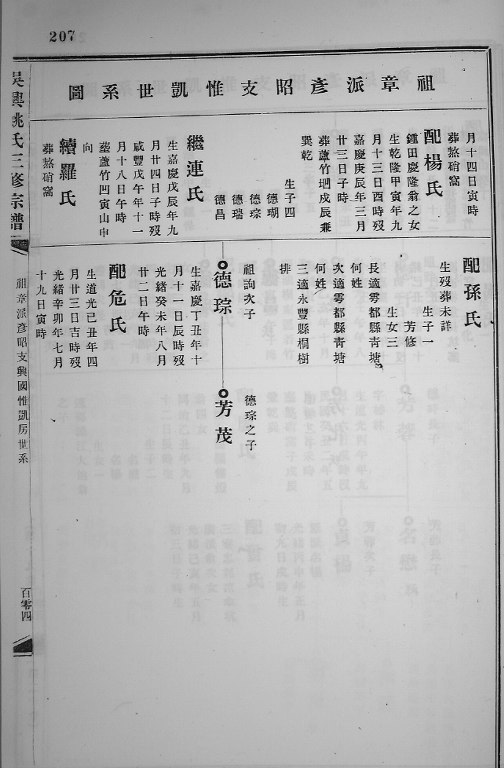 207
祖章派彥昭支惟凱世系圖
月十四日寅時
葬熬硝窩
配楊氏
鍾田慶隆翁之女
生乾隆甲寅年九
月十三日酉時歿
嘉慶庚辰年三月
廿三日子時
葬蘆竹坳戌辰兼
巽乾
生子四
德瑚
德琮
德瑞
德昌
繼連氏
生嘉慶戊辰年九
月廿四日子時歿
咸豐戊午年十一
月十八日午時
葬蘆竹凹寅山申
向
續羅氏
葬熬硝窩
配孫氏
生歿葬未詳
生子一
芳修
生女三
長適雩都縣青塘
何姓
次適雩都縣青塘
何姓
三適永豐縣桐樹
排
祖詢次子
德琮
生嘉慶丁丑年十
月十一日辰時歿
光緒癸未年八月
廿二日午時
配危氏
生道光己丑年四
月廿三日吉時歿
光緒辛卯年七月
十九日寅時
德琮之子
芳茂
吳興姚氏三修宗譜
祖章派彥昭支興國惟凱房世系
百零四